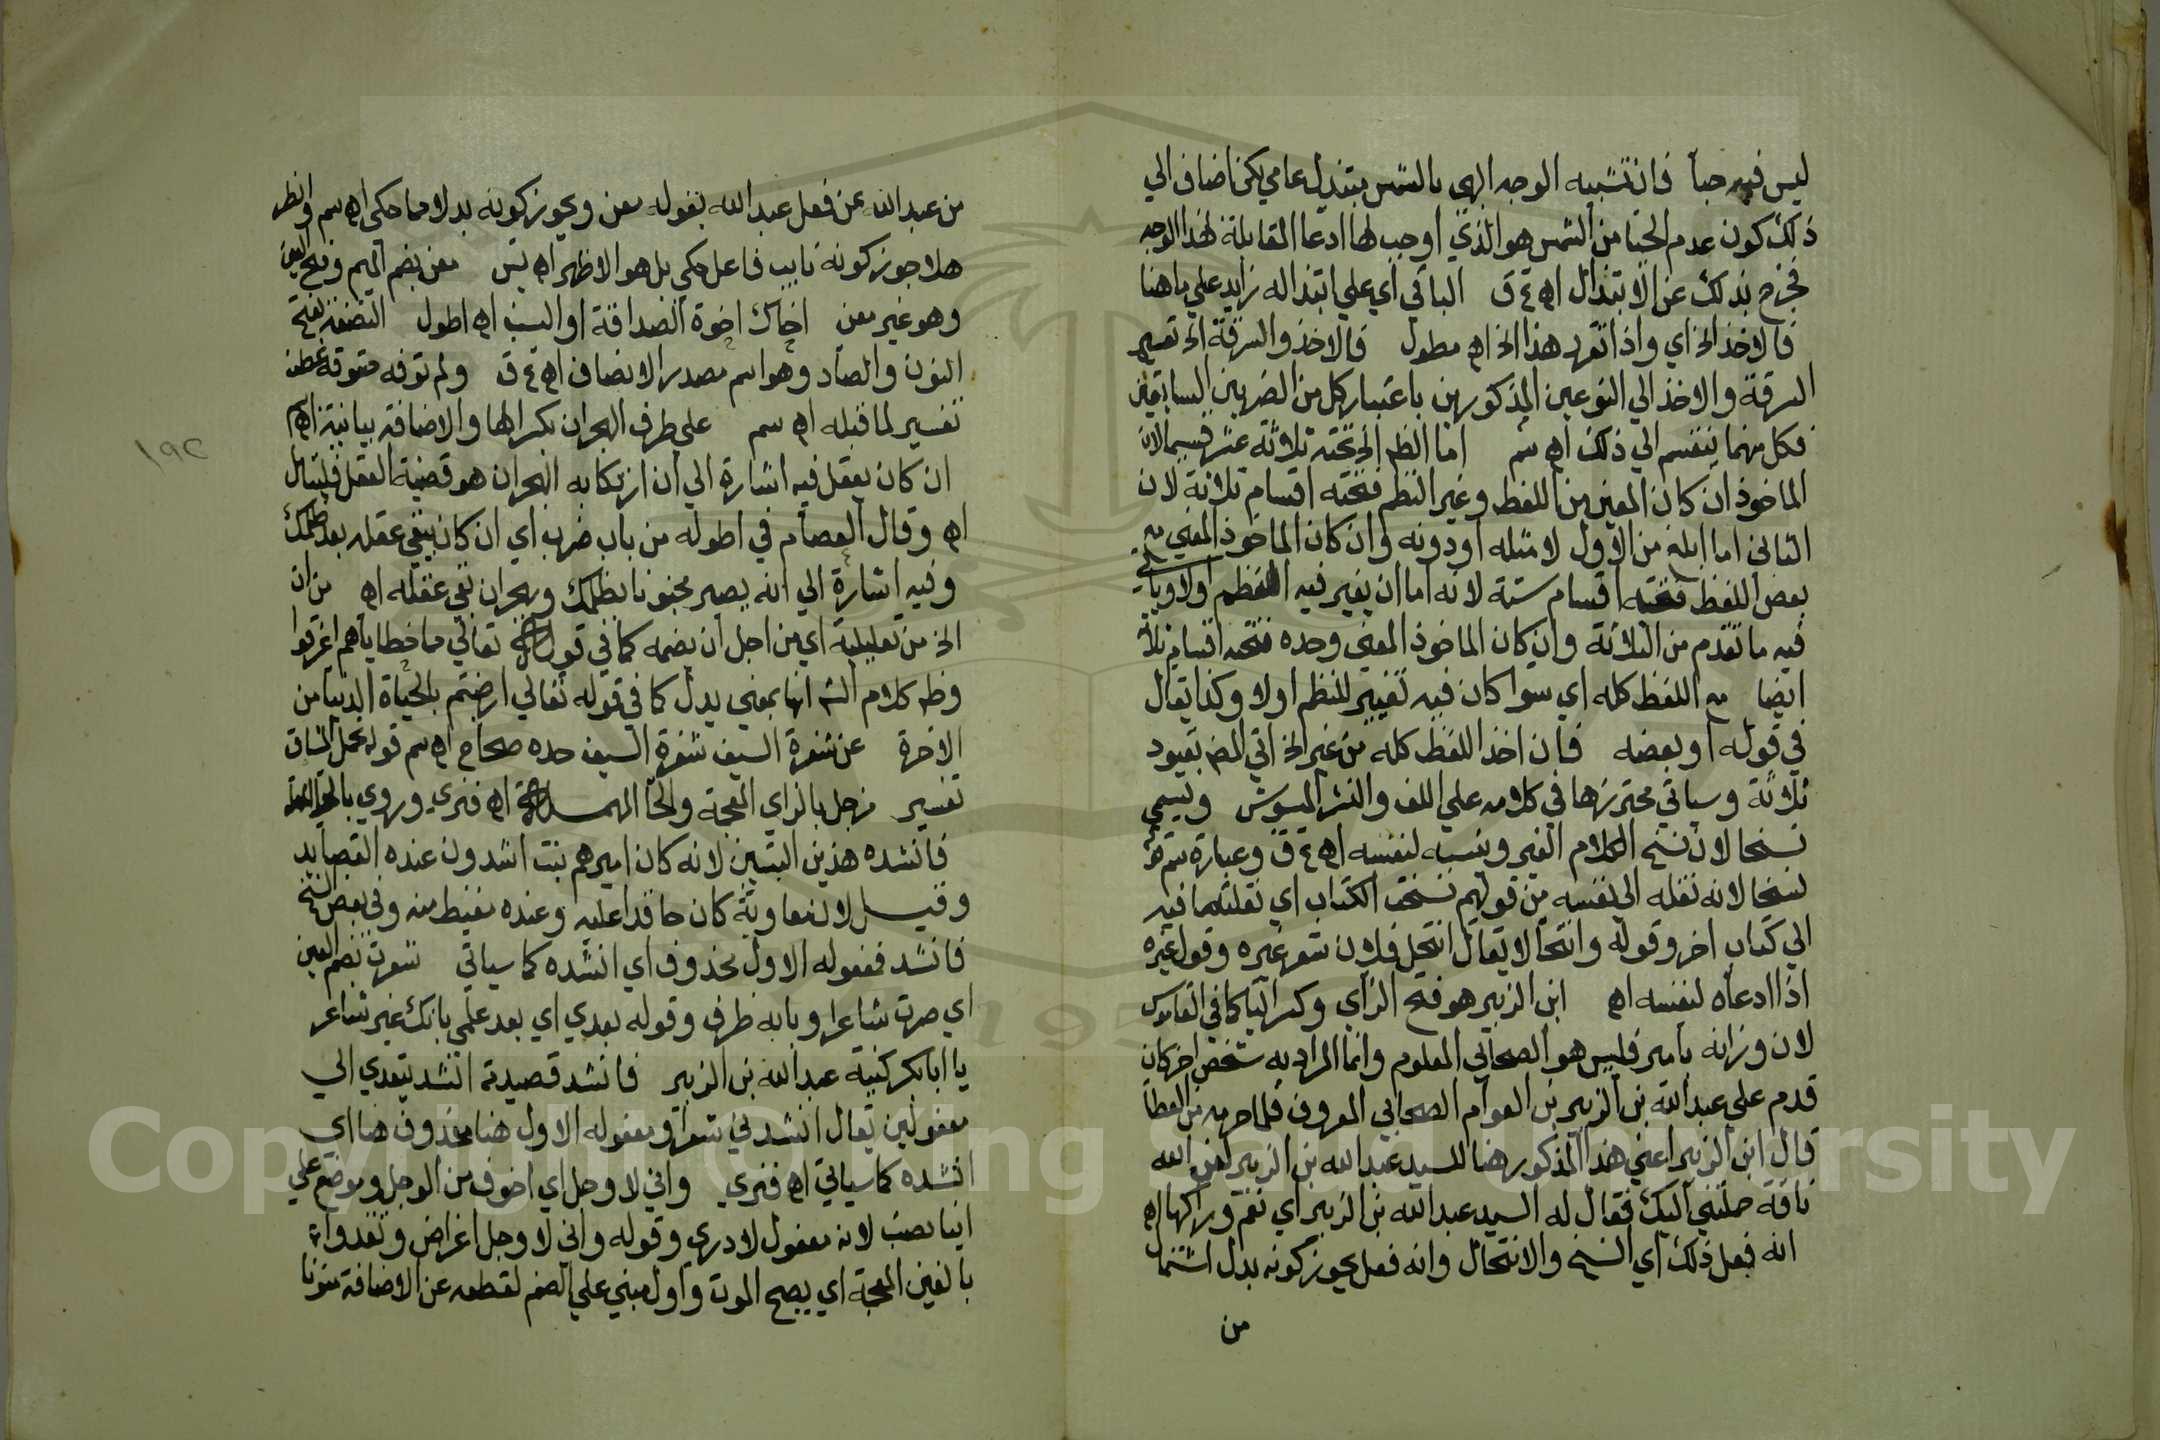 ليس فيه حيا فان تشبيه الوجه البهي بالشمس مبتذل عامي لكن اضاف الي
ذلك كون عدم الحيا من الشمس هو الذي اوجب لها ادعا المقابلة لهذا الوجه
فخرج بذلك عن الابتذال اه ع ق الباقي اي علي ابتذاله زايد علي ما هنا
فالاخذ الخ اي واذا تقرر هذا الخ اه مطول فالاخذ والسرقة الخ تقسيم
السرقة والاخذ الي النوعين المذكورين باعتبار كل من الضربين السابقين
فكل منهما ينقسم الي ذلك اه سم اما الظاهر الخ تحته ثلاثة عشر قسما لان
الماخوذ ان كان المعني من اللفظ وغير النظم فتحته اقسام ثلاثة لان
الثاني اما ابلغ من الاول او مثله او دونه وان كان الماخوذ المعني مع
بعض اللفظ فتحته اقسام ستة لانه اما ان يغير فيه النظم اولا وياتي
فيه ما تقدم من الثلاثة وان كان الماخوذ المعني وحده فتحته اقسام ثلاثة
ايضا مع اللفظ كله اي سوا كان فيه تغيير للنظم اولا وكذا يقال
في قوله او بعضه فان اخذ اللفظ كله من غير الخ اتي المصنف بقيود
ثلاثة وسياتي محترزها في كلامه علي اللف والنشر المشوش ويسمي
نسخا لانه نسخ الكلام الغير ونسبه لنفسه اه ع ق وعبارة سم
نسخا لانه نقله الي نفسه من قولهم نسخت الكتاب اي نقلت ما فيه
الي كتاب اخر وقوله وانتحالا يقال انتحل فلان شعر غيره وقول غيره
اذا ادعاه لنفسه اه ابن الزبير هو فتح الزاي وكسر البا كما في القاموس
لان وزانه بامير فليس هو الصحابي المعلوم وانما المراد به شخص اخر كان
قدم علي عبد الله بن الزبير بن العوام الصحابي المعروف فلما حرمه من العطا
قال ابن الزبير اعني هذا المذكور هنا للسيد عبد الله بن الزبير لعن الله
ناقة حملتني اليك فقال له السيد عبد الله بن الزبير اي نعم وراكبها اه
انه فعل ذلك اي النسخ والانتحال وانه فعل يجوز كونه بدل اشتمال
من
من عبد الله عن فعل عبد الله بقوله معن ويجوز كونه بدلا مما حكي اه سم وانظر
هلا جوز كونه نايب فاعل حكي بل هو الاظهر اه يس معن بضم الميم وفتح العين
وهو غير معن اخاك اخوة الصداقة او النسب اه اطول النصفة بفتح
النون والصاد وهو اسم مصدر الانصاف اه ع ق ولم توفه حقوقه عطف
تفسير لما قبله اه سم علي طرف الهجران بكسر الها والاضافة بيانية اه
ان كان يعقل فيه اشارة الي ان ارتكابه الهجران هو قضية العقل فليتامل
اه وقال العصام في اطوله من باب ضرب اي ان كان يبقي عقله بعد ظلمك
وفيه اشارة الي انه يصير مجنونا بظلمك وهجران بقي عقله اه من ان
الخ من تعليلية اي من اجل ان نضمه كما في قوله تعالي مما خطاياهم اغرقوا
وظاهر كلام الش انها بمعني بدل كما في قوله تعالي ارضيتم بالحياة الدنيا من
الاخرة عن شفرة السيف شفرة السيف حده صحاح اه سم قوله تحمل المشاق
تفسير زحل بالزاي المعجمة والحا المهملة اه فنري وروي
فانشده هذين البيتين لانه كان اميرهم ينشدون عنده القصايد
وقيل لان معاوية كان حاقدا عليه وعنده مغيظ منه وفي بعض النسخ
فانشد فمفعوله الاول محذوف اي انشده كما سياتي شعرت بضم العين
اي صرت شاعرا وبابه ظرف وقوله بعدي اي بعد علمي بانك غير شاعر
يا ابا بكر كنية عبد الله بن الزبير فانشد قصيدته انشد يتعدي الي
مفعولين يقال انشدني شعرا ومفعوله الاول هنا محذوف هنا اي
انشده كما سياتي اه فنري واني لاوجل اي اخوف من الوجل وموضع علي
اينا نصب لانه مفعول لادري وقوله واني لاوجل اعتراض وتغدوا
بالغين المعجمة اي يصبح الموت واول مبني علي الضم لقطعه عن الاضافة منويا
١٩٢